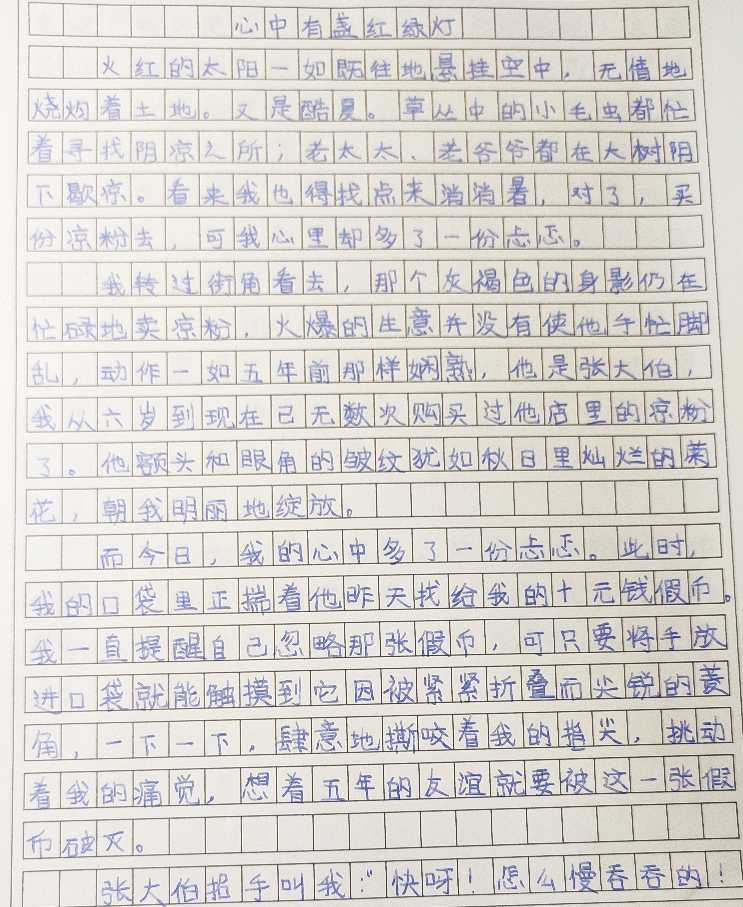 心中有盏红绿灯
火红的太阳一如既往地悬挂空中，无情地
烧灼着土地。又是酷夏。草丛中的小毛虫都忙
着寻找阴凉之所；老太太、老爷爷都在大树阴
下歇凉。看来我也得找点来消消暑，对了，买
份凉粉去，可我心里却多了一份忐忑。
我转过街角看去，那个灰褐色的身影仍在
忙碌地卖凉粉，火爆的生意并没有使他手忙脚
乱，动作一如五年前那样娴熟，他是张大伯，
我从六岁到现在已无数次购买过他店里的凉粉
了。他额头和眼角的皱纹犹如秋日里灿烂的菊
花，朝我明丽地绽放。
而今日，我的心中多了一份忐忑。此时，
我的口袋里正揣着他昨天找给我的十元钱假币。
我一直提醒自己忽略那张假币，可只要将手放
进口袋就能触摸到它因被紧紧折叠而尖锐的菱
角，一下一下，肆意地撕咬着我的指尖，挑动
着我的痛觉，想着五年的友谊就要被这一张假
币破灭。
张大伯招手叫我：“快呀！怎么慢吞吞的！